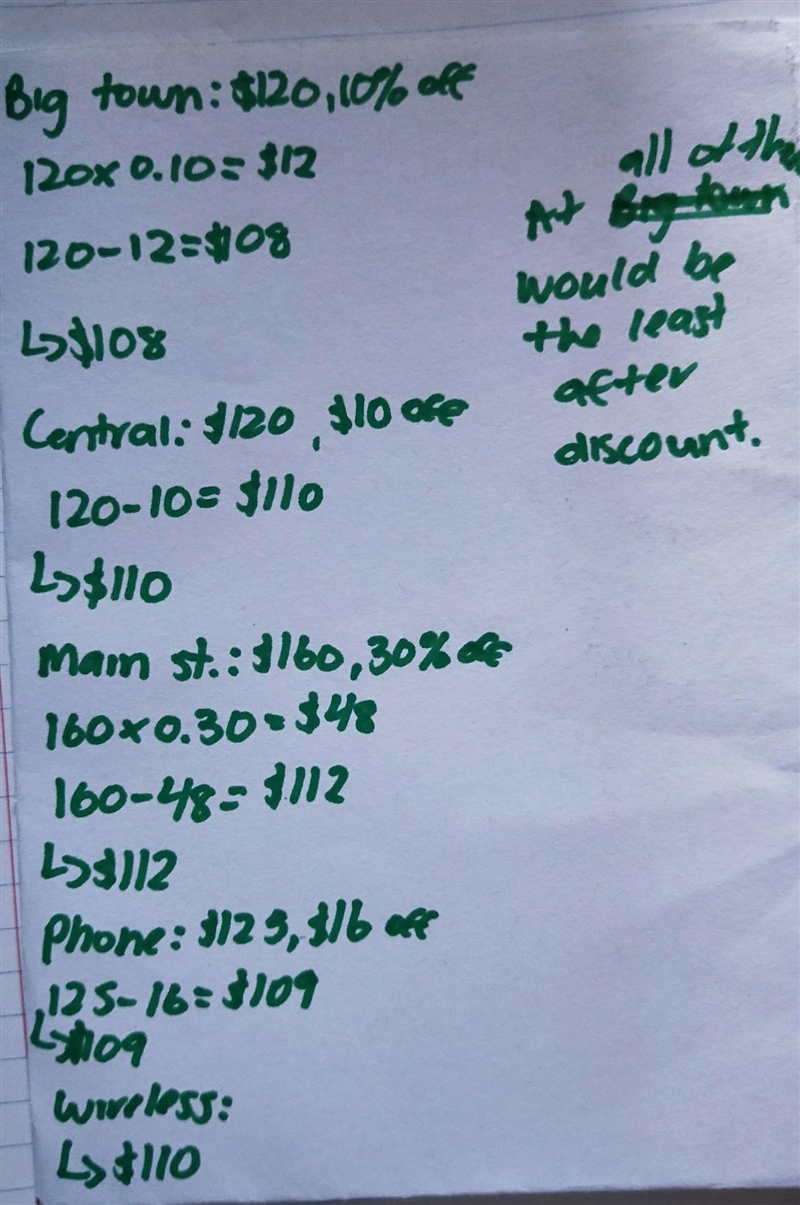 Big town: $120, 10% off
120x 0.10= $12
120-12=$108
↳$108
Central: $120, $10 off
120-10= $110
↳$110
Main st.: $160, 30% off
160x0.30= $48
160-48= $112
↳$112
Phone: $125, $16 off
125-16= $109
↳$109
Wireless:
↳$110
all of the
At Big town
would be
the least
after
discount.